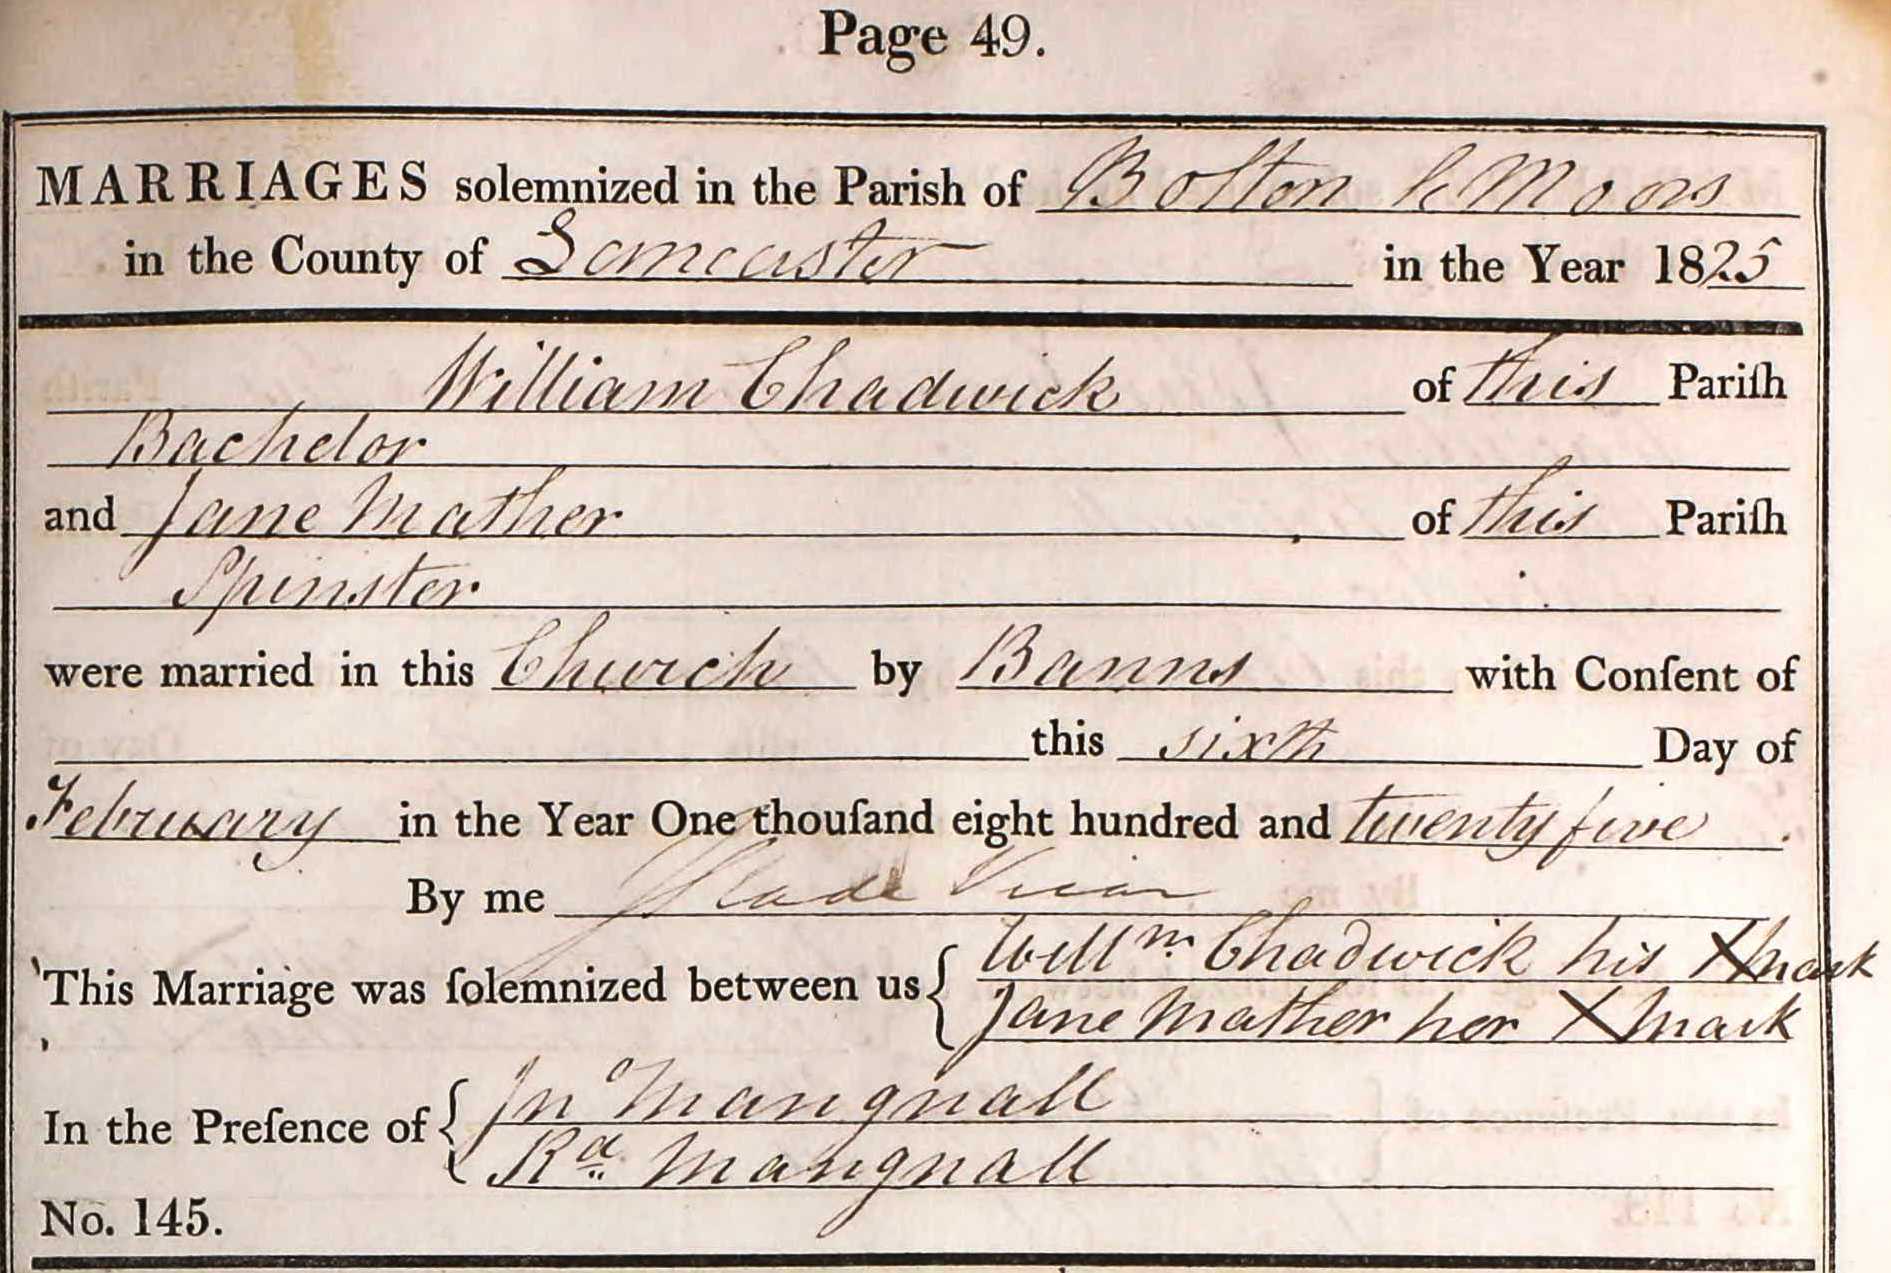 Page 49.
MARRIAGES solemnized in the Parish of Bolton le Moors
in the County of Lancaster in the Year 1825
William Chadwick of this Pariſh
Bachelor
and Jane Mather of this Pariſh
Spinster
were married in this Church by Banns with Conſent of
this sixth Day of
February in the Year One thouſand eight hundred and twenty five .
By me Slade Vicar
This Marriage was ſolemnized between us { Willm Chadwick his X mark
Jane Mather her X mark
In the Preſence of { Jno Mangnall
Rd Mangnall
No. 145.